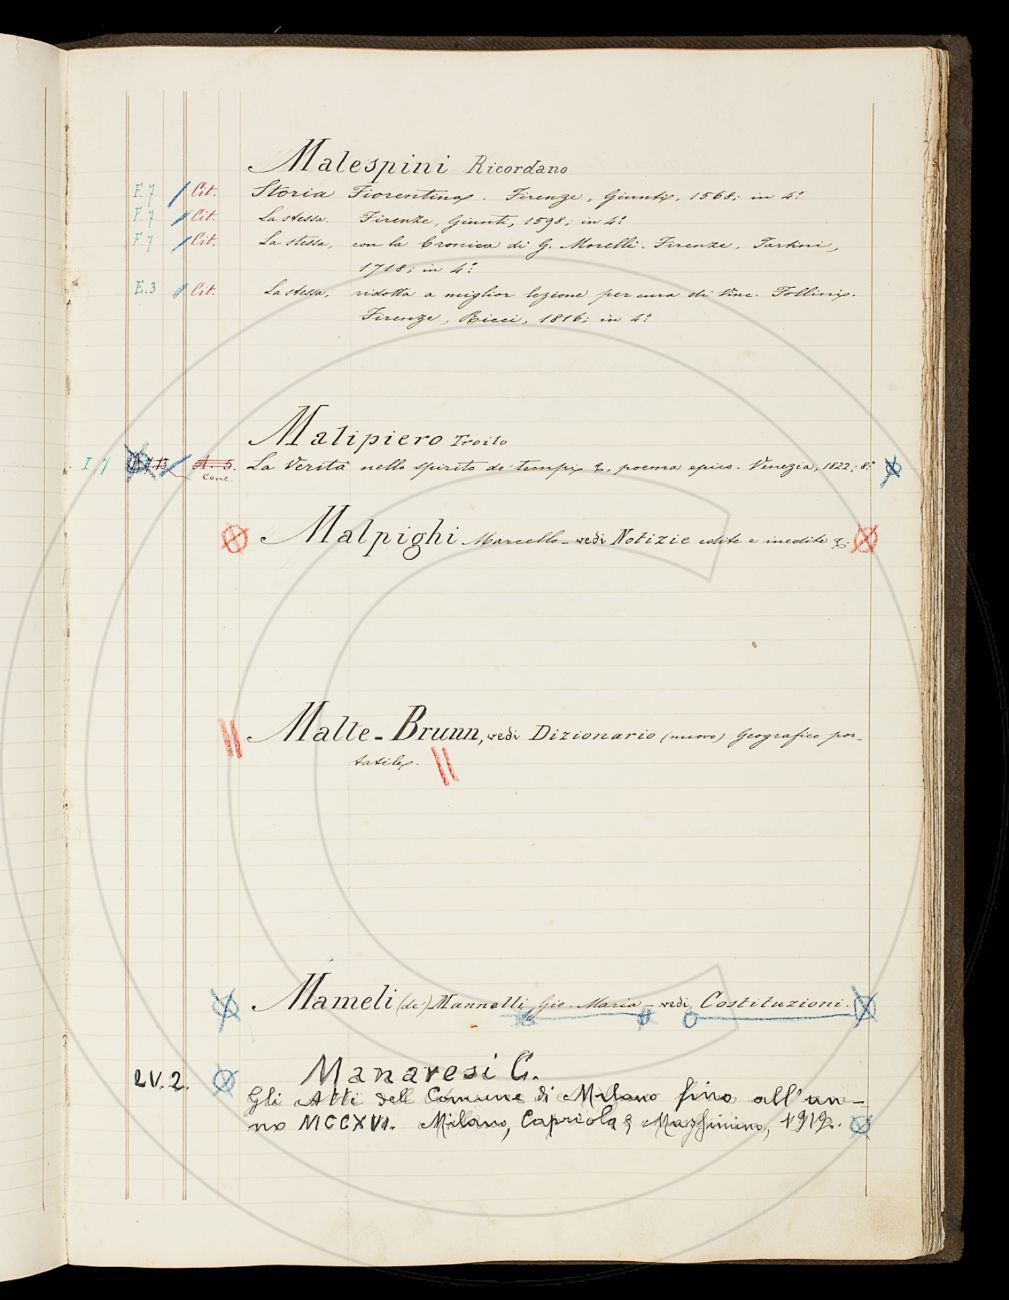 Malespini Ricordano
F. 7 Cit. Storia Fiorentina. Firenze, Giunti, 1568; in 4.º
F. 7 Cit. La stessa. Firenze, Giunti, 1598; in 4.º
F. 7 Cit. La stessa, con la Cronica di G. Morelli. Firenze, Tartini,
1718; in 4.º
E. 3 Cit. La stessa, ridotta a miglior lezione per cura di Vinc. Follini.
Firenze, Ricci, 1816; in 4.º
Malipiero Troilo
I 7 A. 5. La Verità nello spirito de' tempi &, poema epico. Venezia, 1822; 8.º
Conc.
Malpighi Marcello - vedi Notizie edite e inedite &.
Malte-Brunn, vedi Dizionario (nuovo) Geografico por-
tatile.
Mameli (de') Mannelli Gio. Maria - vedi Costituzioni.
LV. 2. Manaresi C.
Gli Atti del Comune di Milano fino all'an-
no MCCXVI. Milano, Capriolo & Massimino, 1919.